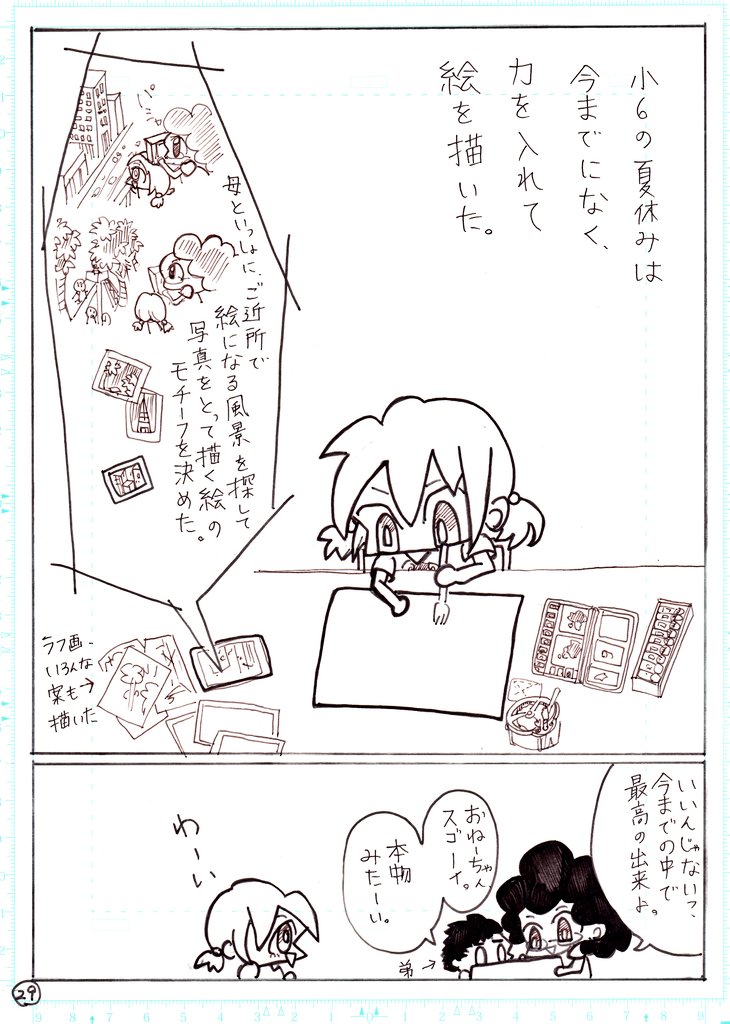 小6の夏休みは
今までになく、
力を入れて
絵を描いた。
母といっしょに、ご近所で
絵になる風景を探して
写真をとって描く絵の
モチーフを決めた。
ラフ画、
いろんな
案も→
描いた
いいんじゃない?、
今までの中で
最高の出来よ。
おねーちゃん
スゴーイ。
本物
みたーい。
弟→
わーい
29